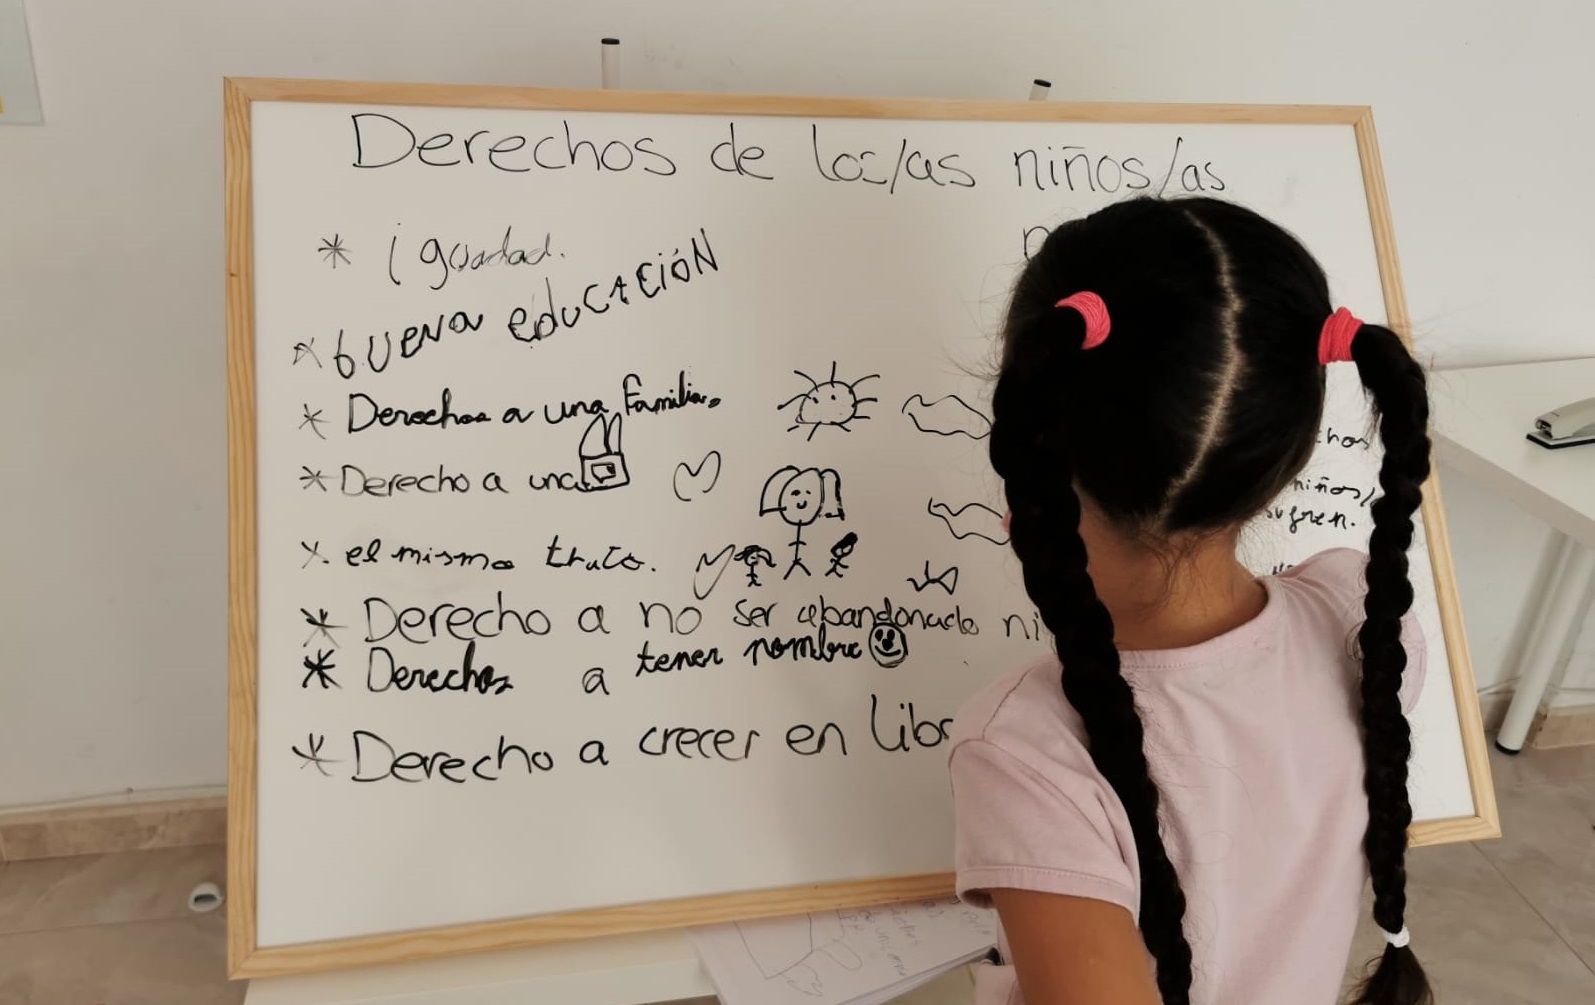 Derechos de los/as niños/as
* igualdad.
* buena educación
* Derechos a una familia.
* Derecho a una
* el mismo trato.
* Derecho a no ser abandonado ni
* Derechos a tener nombre
* Derecho a crecer en
chos
niños/
sufren.